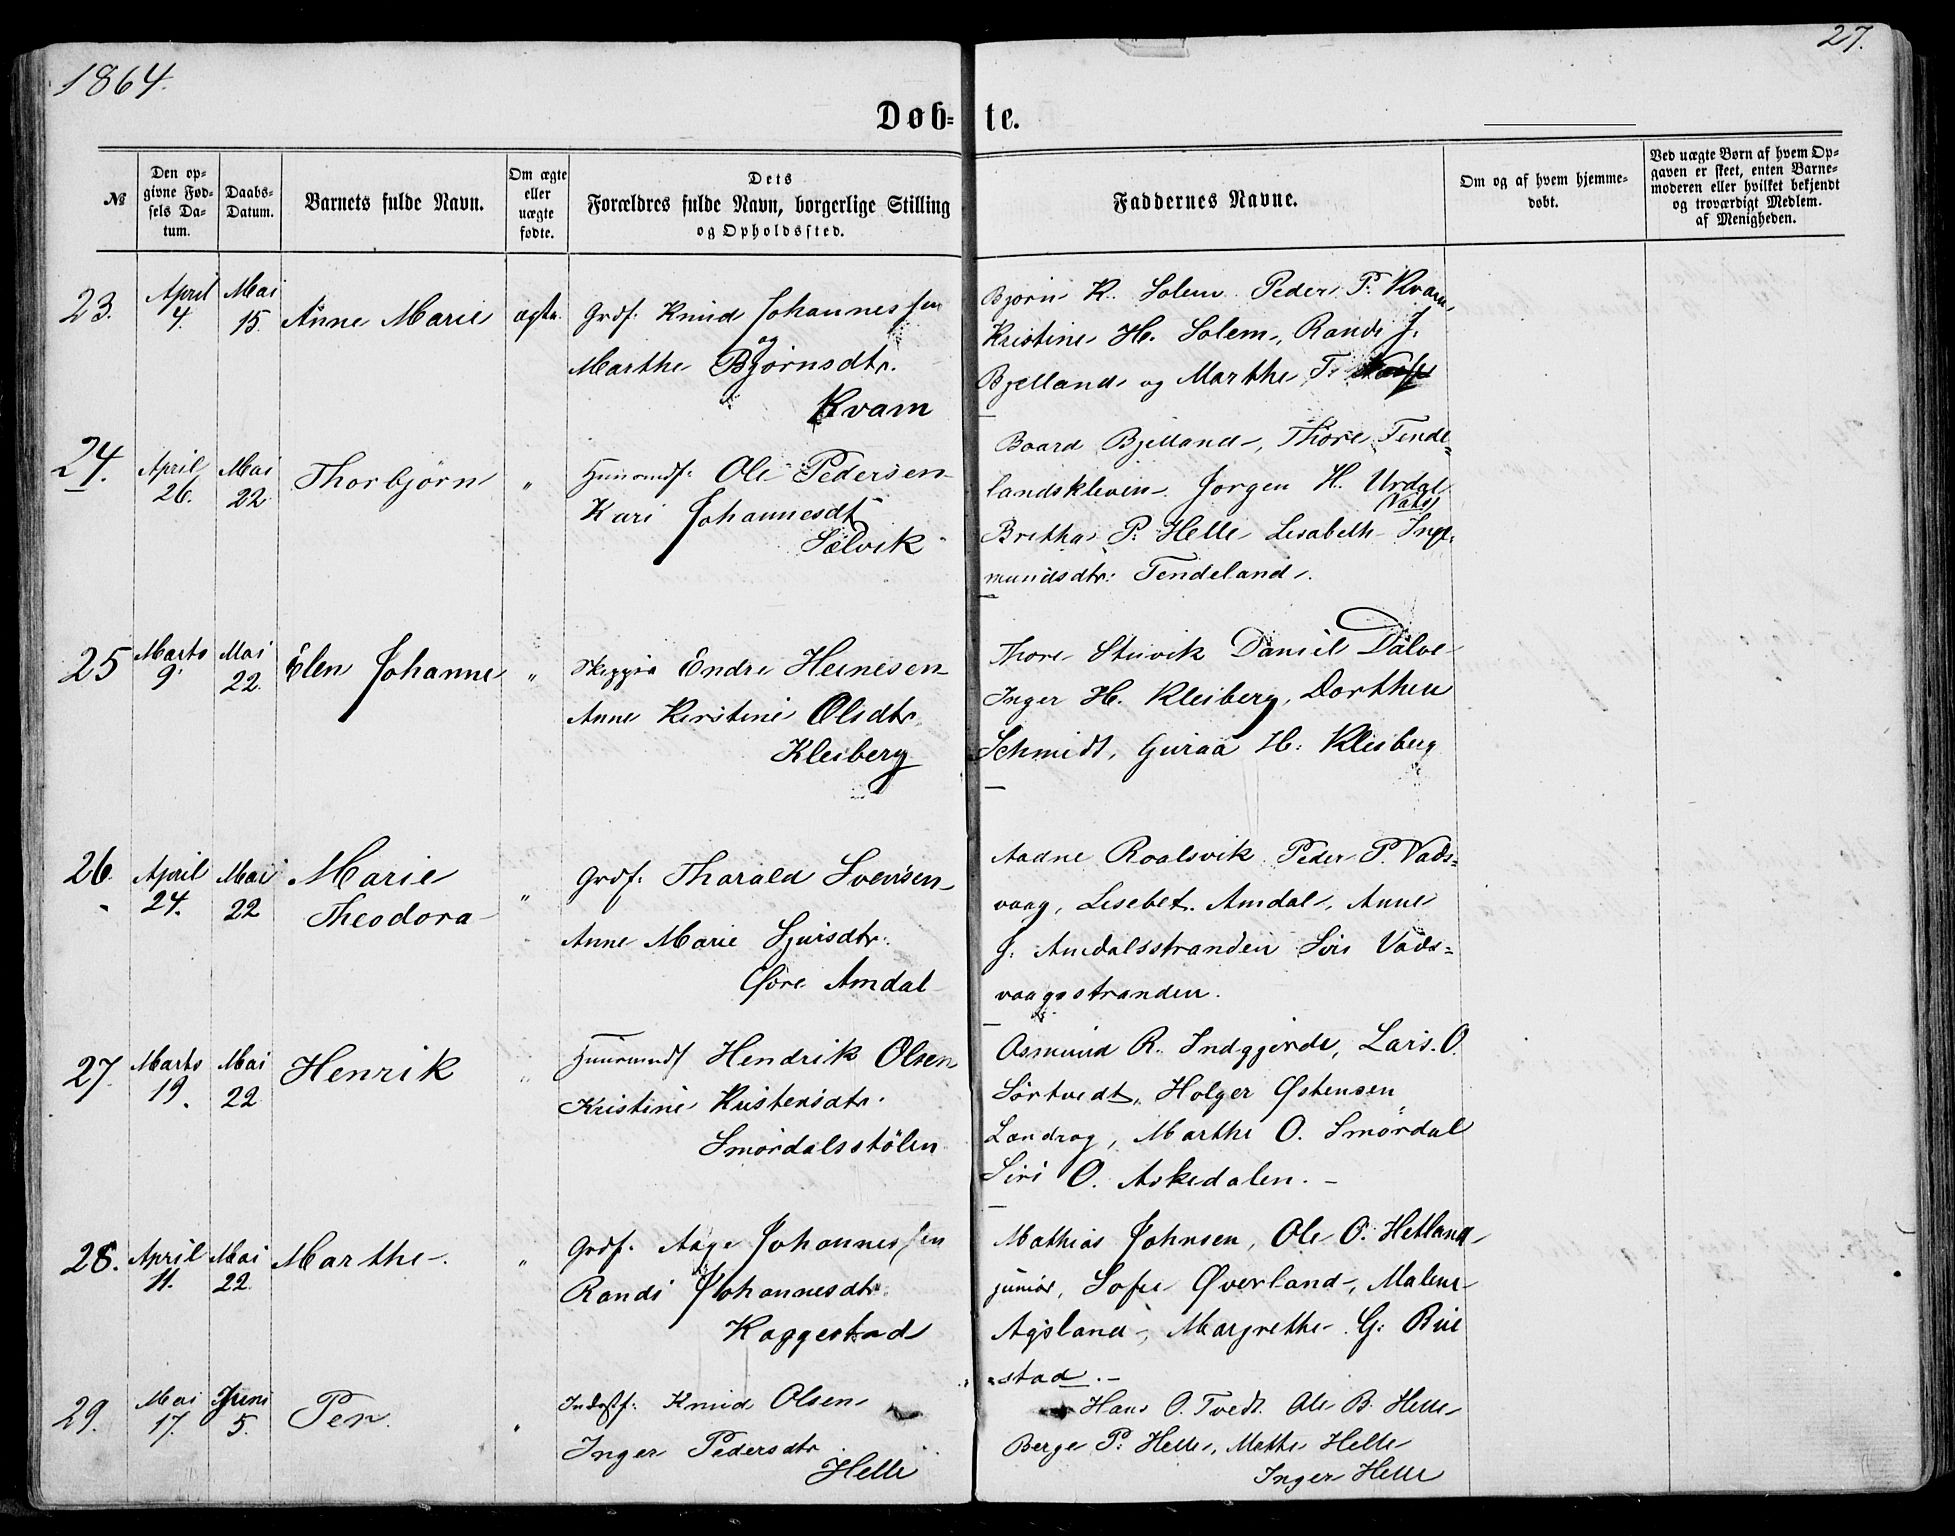 1864.
27.
Døb= te.
№
Den op=
givne Fød=
sels Da=
tum.
Daabs=
Datum.
Barnets fulde Navn.
Om ægte
eller
uægte
fødte.
Dets
Forældres fulde Navn, borgerlige Stilling
og Opholdssted.
Faddernes Navne.
Om og af hvem hjemme=
døbt.
Ved uægte Børn af hvem Op=
gaven er skeet, enten Barne=
moderen eller hvilket bekjendt
og troværdigt Medlem.
af Menigheden.
23. April 4. Mai 15. Anne Marie ægte. Grdf. Knud Johannessen
og
Marthe Bjørnsdtr.
Kvam
Bjørn K. Solem Peder P. Kvam,
Kristine H. Solem, Rande J.
Bjelland og Marthe T.
24. April 26. Mai 22 Thorbjørn " Huusmdf. Ole Pedersen
Kari Johannesdt
Sælvik
Baard Bjelland, Thore Tende=
landskleven. Jørgen H. Urdal
(Vats)
Bretha P. Helle Lisabeth Inge
mundsdtr. Tendeland.
25 Marts 9. Mai 22. Elen Johanne " Endre Heinesen
Anne Kirstine Olsdtr.
Kleiberg
Thore Stuvik Daniel Dalve
Inger H. Kleiberg, Dorthea
Schmidt, Guraa H. Kleiberg
26. April 24. Mai 22 Marie
Theodora " Grdf. Tharald Svensen
Anne Marie Sjursdtr.
Øvre Amdal
Aadne Roalsvik Peder P. Vads=
vaag, Lisebet. Amdal, Anne
J. Amdalsstranden Siri Vads=
vaagsstranden.
27. Marts 19. Mai 22 Henrik " Huusmndf Hendrik Olsen
Kristine Kristensdtr.
Smørdalsstølen
Asmund R. Indgjerde, Lars. O.
Sørtvedt, Holger Østensen
Landrag, Marthe O. Smørdal
Siri O. Askedalen.
28. April 11. Mai 22. Marthe. " Grdf. Aage Johannessen
Randi Johannesdtr.
Kaggestad
Mathias Johnsen, Ole O. Hetland
junior, Sofie Øverland, Malene
Agsland, Margrethe G. Rue
stad.
29. Mai 17. Juni 5. Per. " Inderstf. Knud Olsen
Inger Pedersdtr
Helle
Hans O. Tvedt. Ole B. Helle
Berge P. Helle, Mathe Helle
Inger Helle